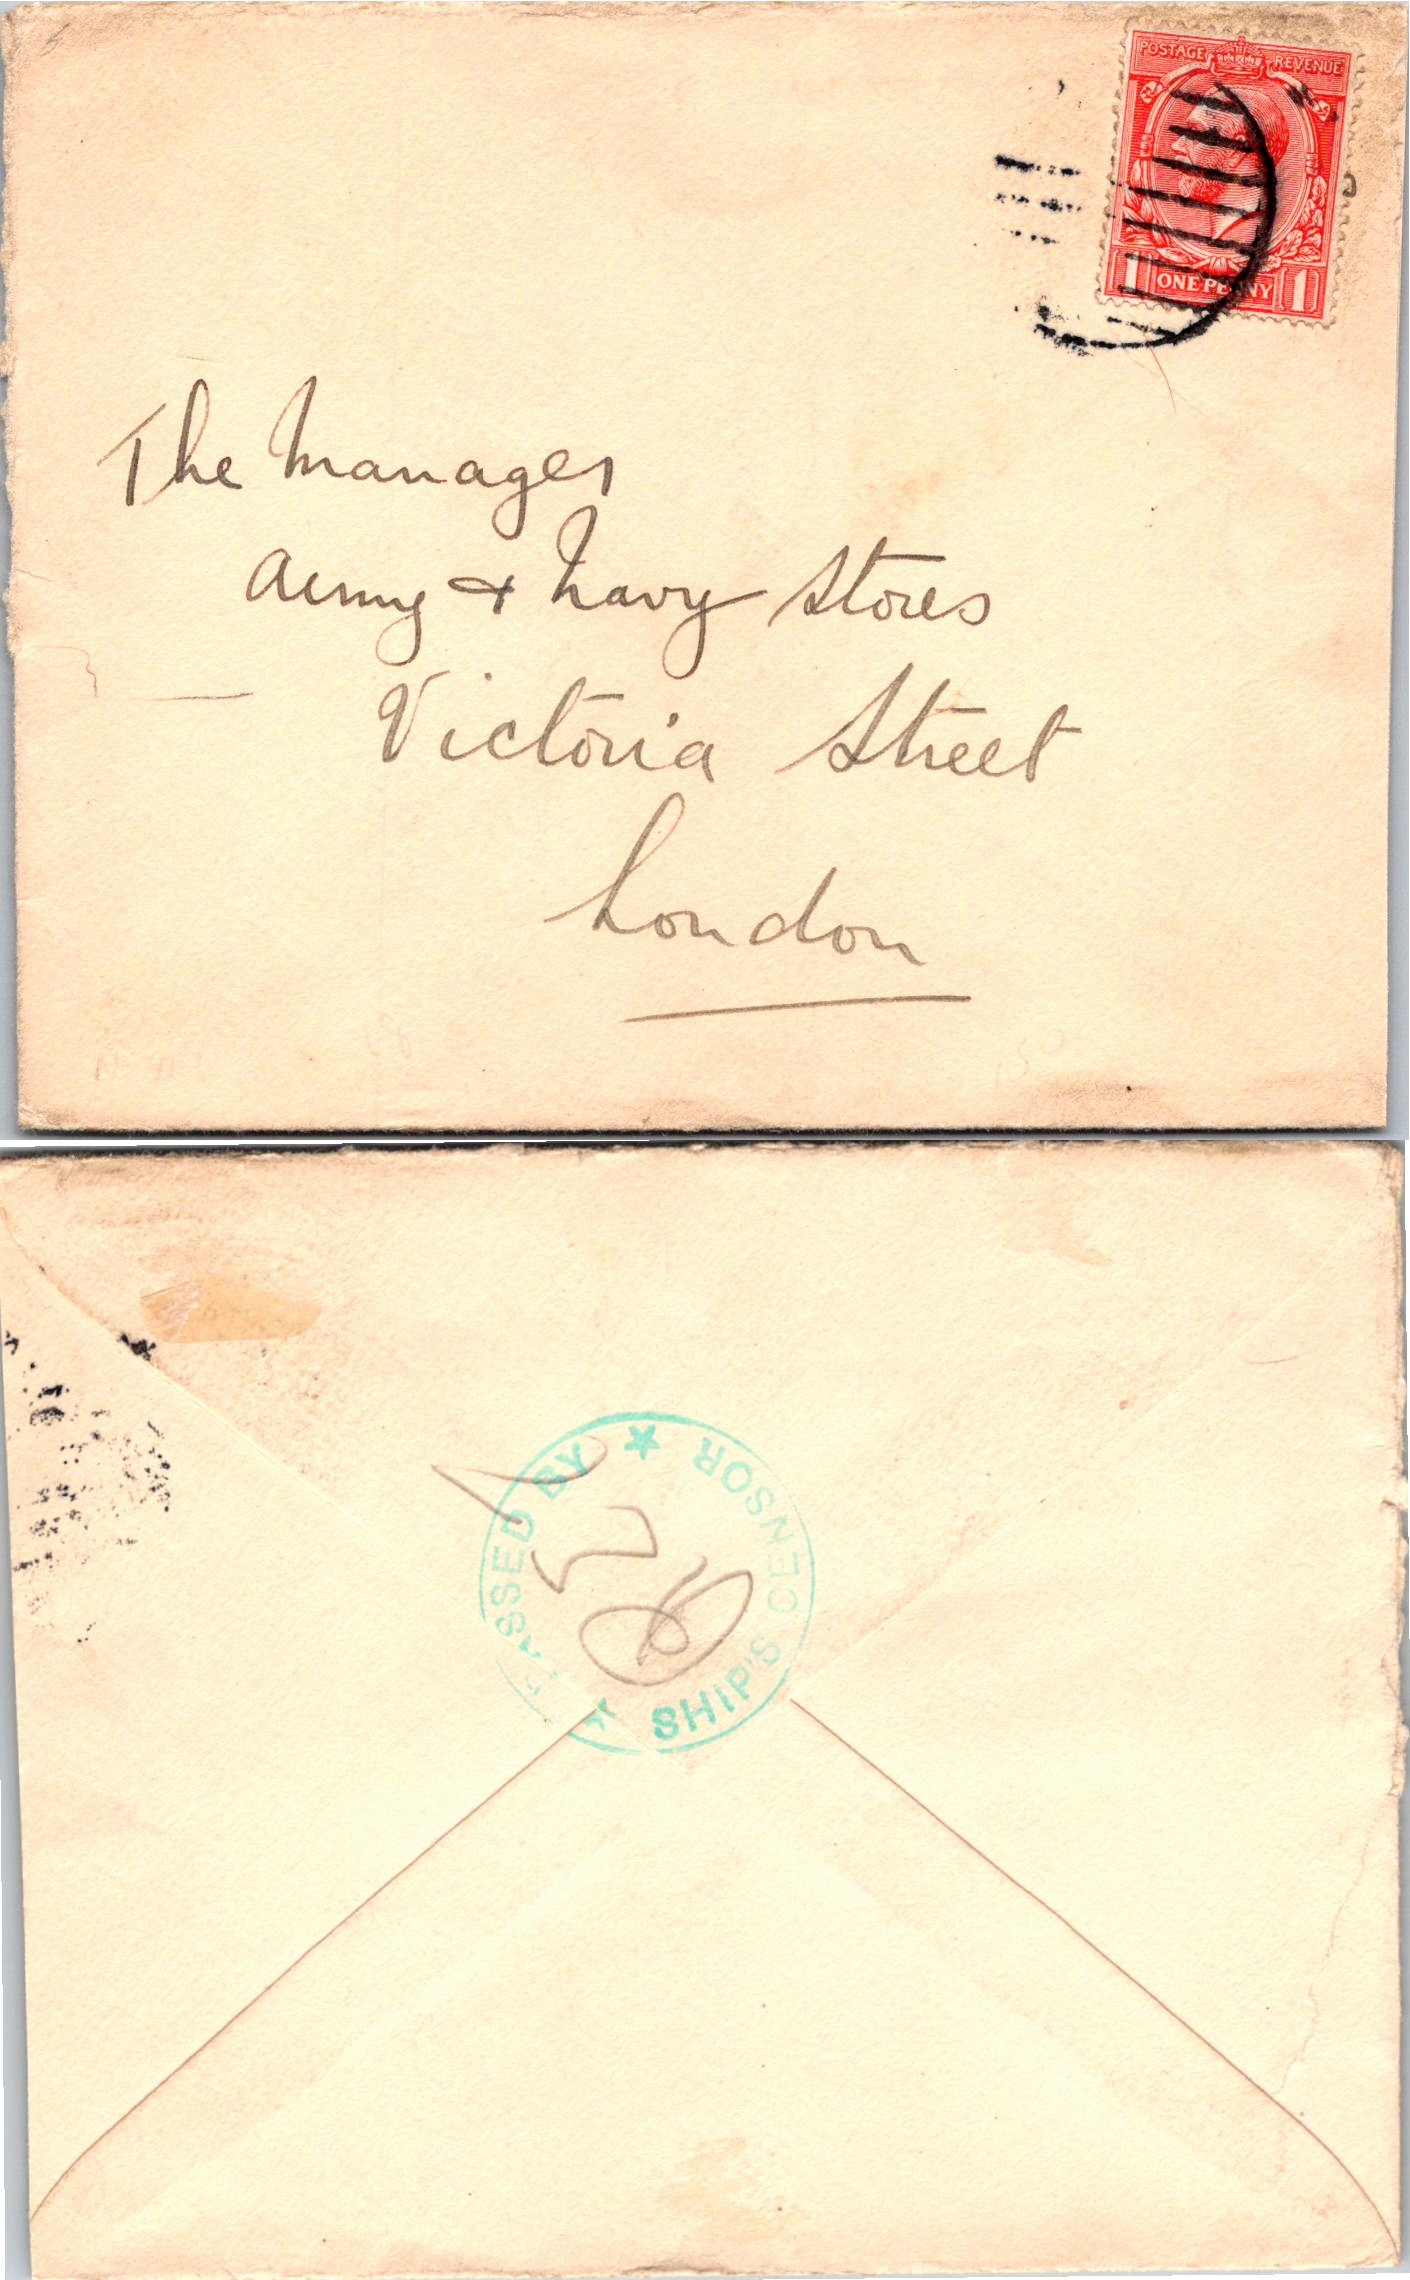 POSTAGE REVENUE
1 ONE PENNY 1
The Manager
Army & Navy Stores
Victoria Street
London
PASSED BY ★ SHIP'S CENSOR ★